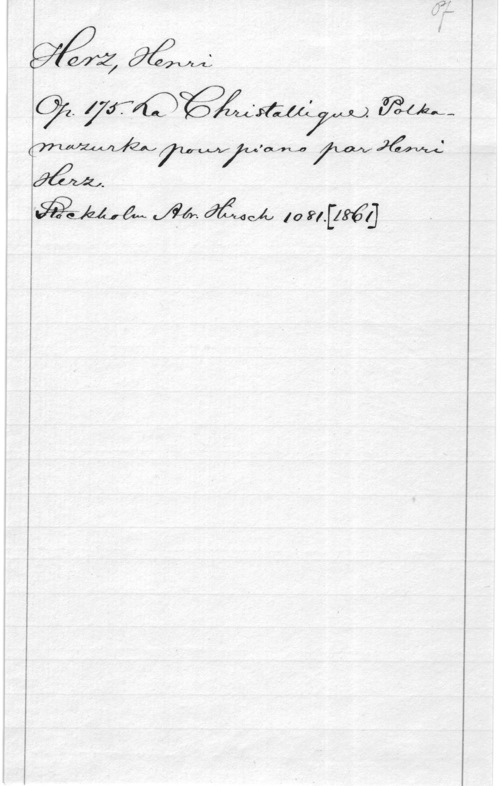 Pf
Herz, Henri
Op. 175. La Christallique. Polka-
mazurka pour piano par Henri
Herz.
Stockholm Abr. Hirsch 1081. [1861]